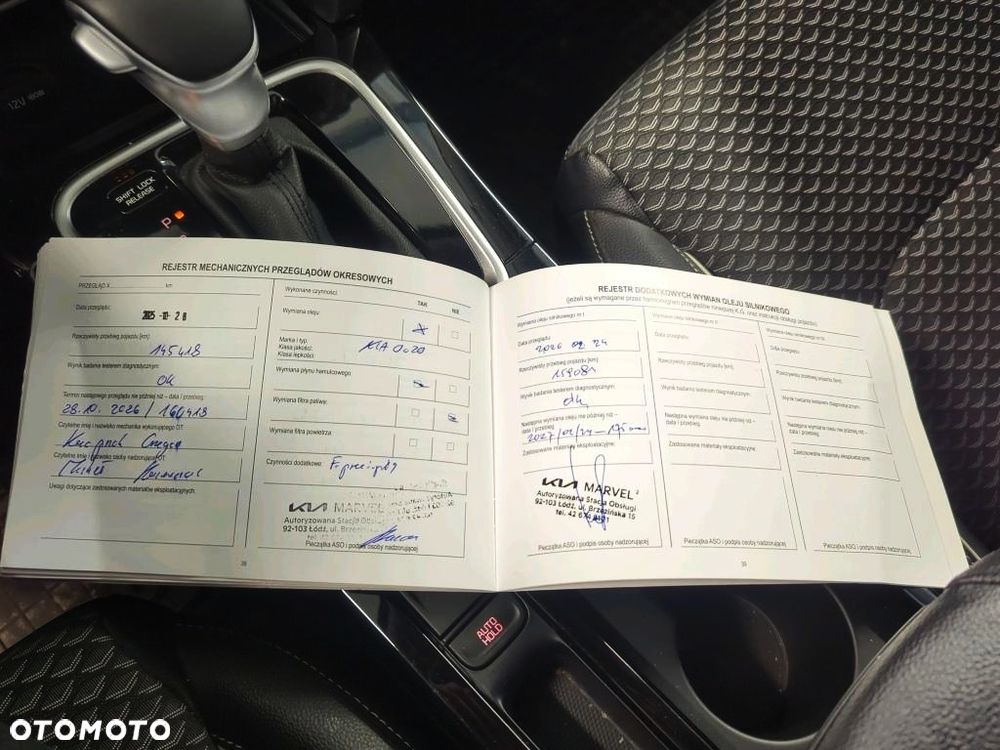 12V 180W
SHIFT LOCK
RELEASE
P
REJESTR MECHANICZNYCH PRZEGLĄDÓW OKRESOWYCH
PRZEGLĄD X km
Data przeglądu:
2025 -10- 28
Rzeczywisty przebieg pojazdu [km]:
145418
Wynik badania testerem diagnostycznym:
ok
Termin następnego przeglądu nie później niż – data / przebieg:
28.10.2026 / 160418
Czytelne imię i nazwisko mechanika wykonującego OT:
Czytelne imię i nazwisko osoby nadzorującej OT:
Uwagi dotyczące zastosowanych materiałów eksploatacyjnych:
38
Wykonane czynności:
TAK
NIE
Wymiana oleju:
Marka i typ:
Klasa jakości:
Klasa lepkości:
KIA 0w20
Wymiana płynu hamulcowego:
Wymiana filtra paliwa:
Wymiana filtra powietrza:
Czynności dodatkowe:
KIA MARVEL
Autoryzowana Stacja Obsługi
92-103 Łódź, ul. Brzezińska
Pieczątka ASO i podpis osoby nadzorującej
REJESTR DODATKOWYCH WYMIAN OLEJU SILNIKOWEGO
(jeżeli są wymagane przez harmonogram przeglądów niniejszej K.G. oraz instrukcji obsługi pojazdu)
Wymiana oleju silnikowego nr I
Data przeglądu
2026 02 24
Rzeczywisty przebieg pojazdu [km]
159081
Wynik badania testerem diagnostycznym
ok
Następna wymiana oleju nie później niż –
data i przebieg
Zastosowane materiały eksploatacyjne:
KIA MARVEL 2
Autoryzowana Stacja Obsługi
92-103 Łódź, ul. Brzezińska 15
Pieczątka ASO i podpis osoby nadzorującej
Wymiana oleju silnikowego nr II
Data przeglądu:
Rzeczywisty przebieg pojazdu [km]
Wynik badania testerem diagnostycznym
Następna wymiana oleju nie później niż –
data i przebieg
Zastosowane materiały eksploatacyjne:
Pieczątka ASO i podpis osoby nadzorującej
Wymiana oleju silnikowego nr
Data przeglądu:
Rzeczywisty przebieg pojazdu [km]
Wynik badania testerem diagnostycznym
Następna wymiana oleju nie później niż –
data i przebieg
Zastosowane materiały eksploatacyjne:
Pieczątka ASO i podpis osoby nadzorującej
39
AUTO
HOLD
OTOMOTO